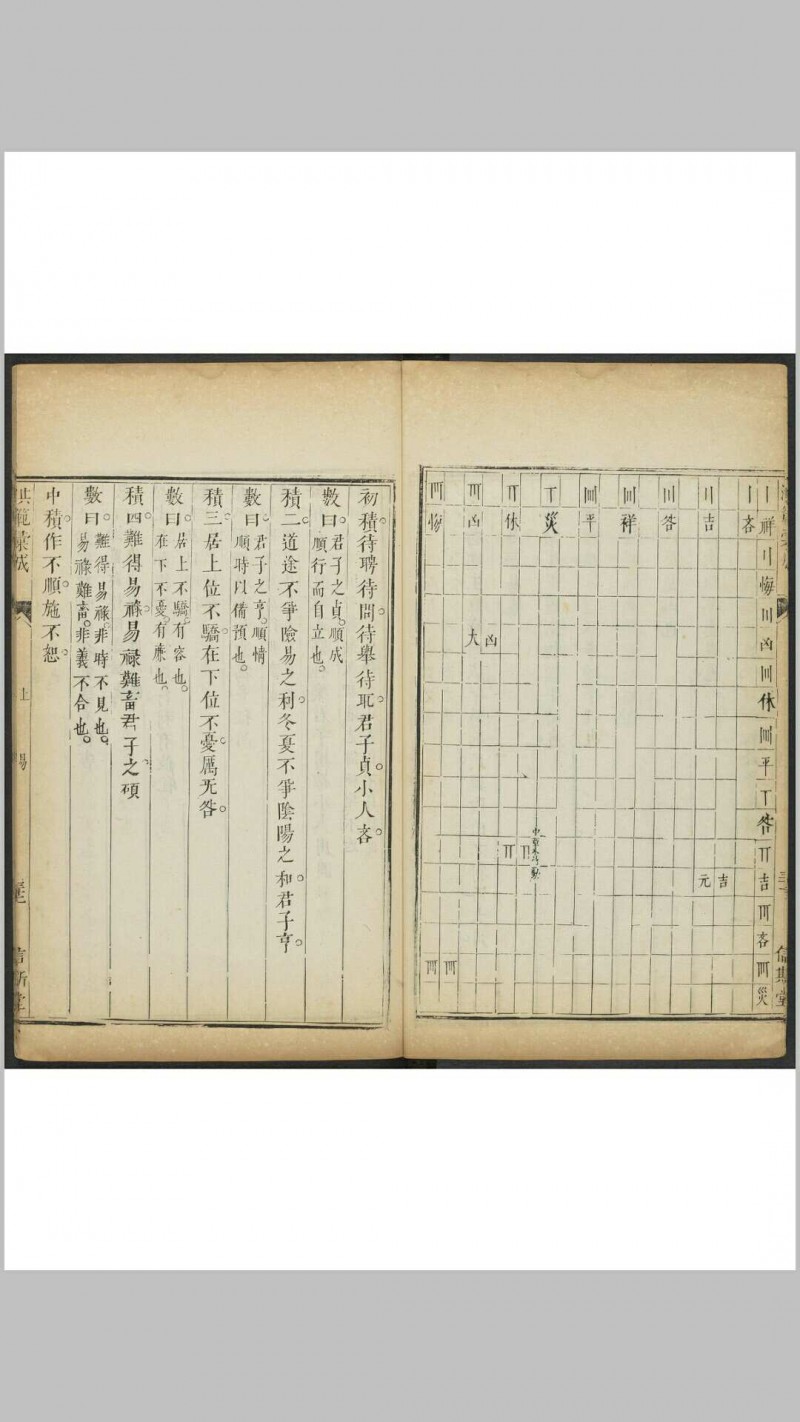 祥 悔 凶 休 平 咎 吉 吝 災
吝 吉 咎 祥 平 災 休 凶 悔
大凶
元吉
初積。待聘待問。待舉待耴。君子貞。小人吝。
數曰。君子之貞。順成
順行而自立也。
積二。道途不爭險易之利。冬夏不爭陰陽之和。君子亨。
數曰。君子之亨。順情
順時以備預也。
積三。居上位不驕。在下位不憂。厲无咎。
數曰。居上不驕。有容也。
在下不憂。有 也。
積四。難得易祿。易祿難畜。君子之碩
數曰。難得易祿。非時不見也。
易祿難畜。非義不合也。
中積。作不順。施不恕。
洪範彙成 上 信斯堂